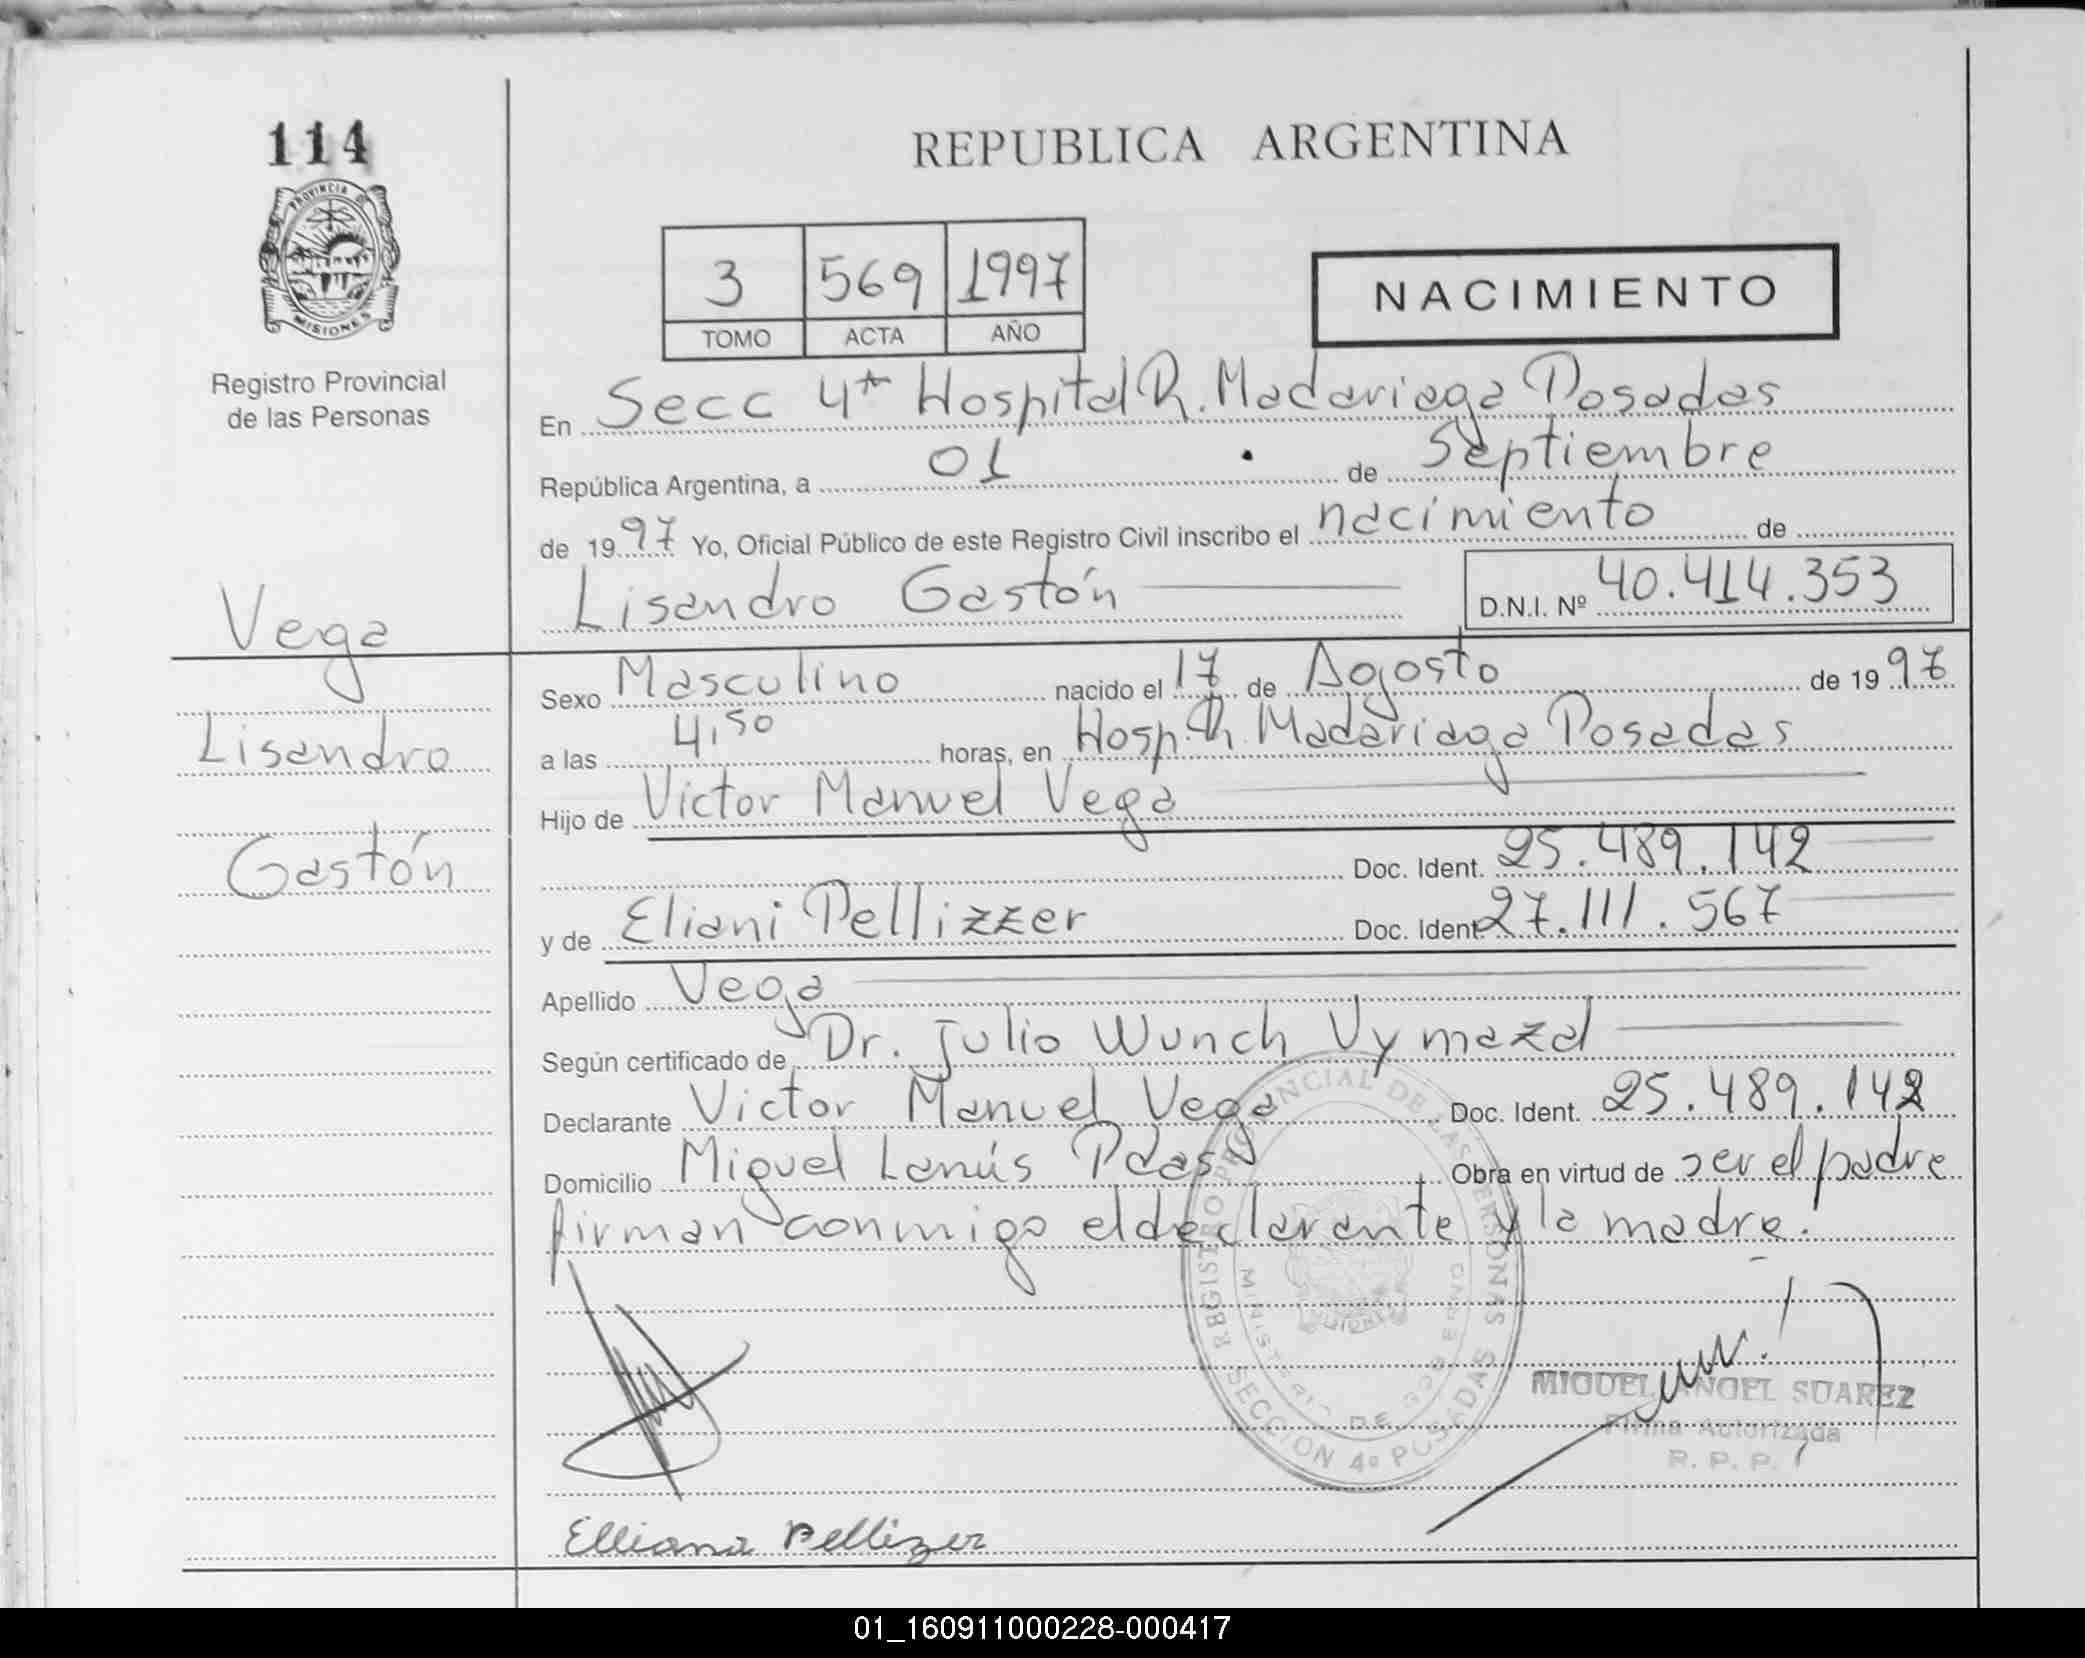 114
REPUBLICA ARGENTINA
PROVINCIA DE
MISIONES
3 569 1997
TOMO ACTA AÑO
NACIMIENTO
Registro Provincial
de las Personas
En Secc 4ta Hospital R. Madariaga Posadas
República Argentina, a 01 de Septiembre
de 1997 Yo, Oficial Público de este Registro Civil inscribo el nacimiento de
Lisandro Gastón D.N.I. Nº 40.414.353
Vega
Lisandro
Gastón
Sexo Masculino nacido el 17 de Agosto de 1997
a las 4,50 horas, en Hosp. R. Madariaga Posadas
Hijo de Victor Manuel Vega
Doc. Ident. 25.489.142
y de Eliani Pellizzer Doc. Ident. 27.111.567
Apellido Vega
Según certificado de Dr. Julio Wunch Vymazal
Declarante Victor Manuel Vega Doc. Ident. 25.489.142
Domicilio Miguel Lanús Pdas Obra en virtud de ser el padre
firman conmigo el declarante y la madre.
REGISTRO PROVINCIAL DE LAS PERSONAS
MINISTERIO DE GOBIERNO
SECCION 4º POSADAS
MIGUEL ANGEL SUAREZ
Firma Autorizada
R. P. P.
Elliana Pellizer
01_160911000228-000417